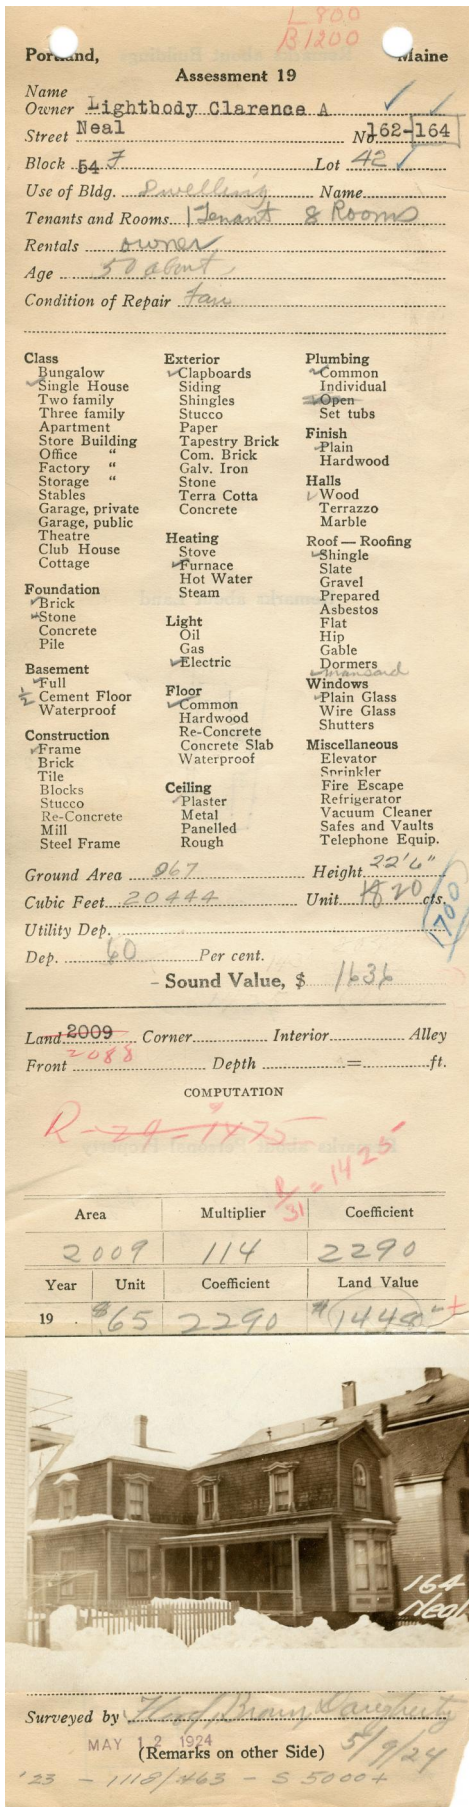 L 800
B 1200
Portland, Maine
Assessment 19
Name
Owner Lightbody Clarence A
Street Neal No. 162-164
Block 54 F Lot 42
Use of Bldg. Dwelling Name
Tenants and Rooms 1 Tenant 8 Rooms
Rentals owner
Age 50 about
Condition of Repair Fair
Class
Bungalow
Single House
Two family
Three family
Apartment
Store Building
Office "
Factory "
Storage "
Stables
Garage, private
Garage, public
Theatre
Club House
Cottage
Foundation
Brick
Stone
Concrete
Pile
Basement
Full
1/2 Cement Floor
Waterproof
Construction
Frame
Brick
Tile
Blocks
Stucco
Re-Concrete
Mill
Steel Frame
Exterior
Clapboards
Siding
Shingles
Stucco
Paper
Tapestry Brick
Com. Brick
Galv. Iron
Stone
Terra Cotta
Concrete
Heating
Stove
Furnace
Hot Water
Steam
Light
Oil
Gas
Electric
Floor
Common
Hardwood
Re-Concrete
Concrete Slab
Waterproof
Ceiling
Plaster
Metal
Panelled
Rough
Plumbing
Common
Individual
Open
Set tubs
Finish
Plain
Hardwood
Halls
Wood
Terrazzo
Marble
Roof — Roofing
Shingle
Slate
Gravel
Prepared
Asbestos
Flat
Hip
Gable
Dormers
Mansard
Windows
Plain Glass
Wire Glass
Shutters
Miscellaneous
Elevator
Sprinkler
Fire Escape
Refrigerator
Vacuum Cleaner
Safes and Vaults
Telephone Equip.
Ground Area 967 Height 22'6"
Cubic Feet 20444 Unit 18 20 cts.
1700
Utility Dep.
Dep. 60 Per cent.
- Sound Value, $ 1636
Land 2009 Corner Interior Alley
2088
Front Depth = ft.
COMPUTATION
R-29-1475-
R/31 = 1425
Area Multiplier Coefficient
2009 114 2290
Year Unit Coefficient Land Value
19 . $.65 2290 $1448
164
Neal
Surveyed by Flood, Brown, Daugherty
MAY 12 1924 5/9/24
(Remarks on other Side)
'23 - 1118/463 - S 5000+